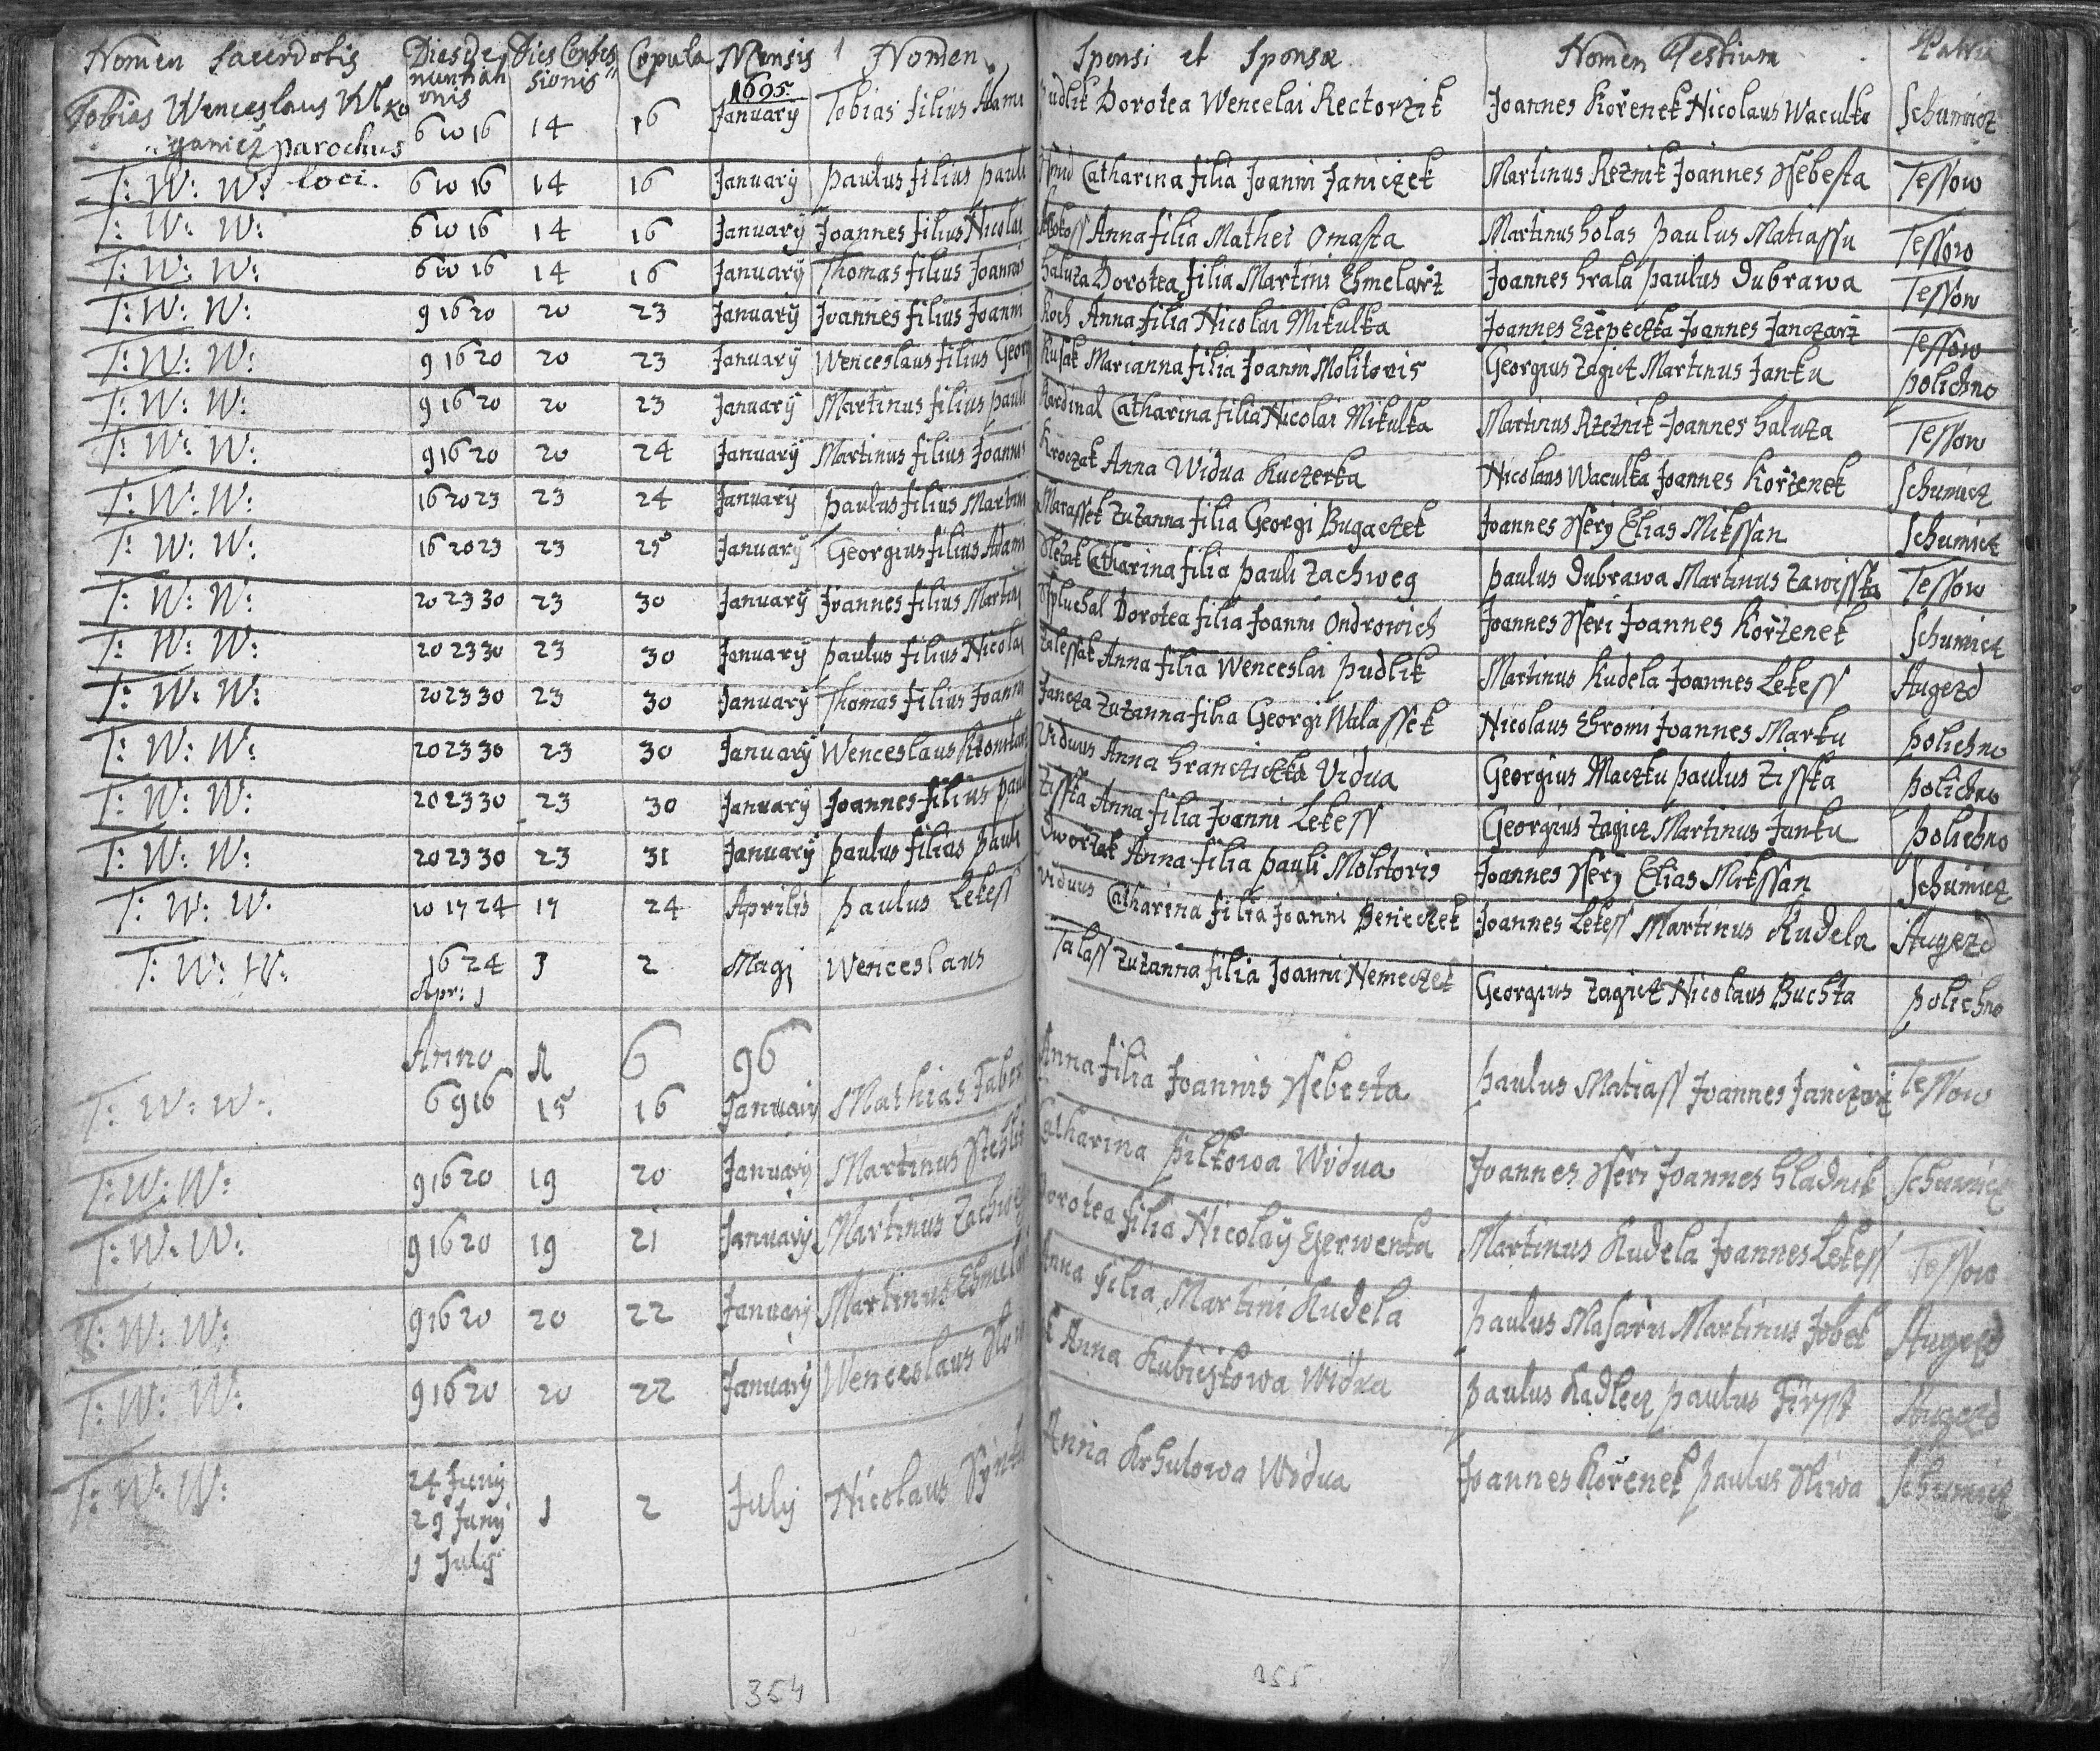 Nomen Sacerdotis Dies De Dies Confes Copula Mensis Nomen Sponsi et Sponsæ Nomen Testium Patria
nuntiati sionis 1695
onis
Tobias Wenceslaus 6 10 16 14 16 January Tobias filius Adami Pudlik Dorotea Wencelai Rectorzik Joannes Kořenek Nicolaus Waculka Schumicz
parochus
loci.
T: W: W: 6 10 16 14 16 January Paulus filius Pauli Catharina filia Joanni Janiczek Martinus Reznik Joannes Ssebesta Tessow
T: W: W: 6 10 16 14 16 January Joannes filius Nicolai Anna filia Mathei Omasta Martinus Holas Paulus Matiassu Tessow
T: W: W: 6 10 16 14 16 January Thomas filius Joannis Haluza Dorotea filia Martini Chmelarz Joannes Hrala Paulus Dubrawa Tessow
T: W: W: 9 16 20 20 23 January Joannes filius Joanni Koch Anna filia Nicolai Mikulka Joannes Czepeczka Joannes Janczarz Tessow
T: W: W: 9 16 20 20 23 January Wenceslaus filius Georg Kusak Marianna filia Joanni Molitoris Georgius Zagicz Martinus Janku Polichno
T: W: W: 9 16 20 20 23 January Martinus filius Pauli Kardinal Catharina filia Nicolai Mikulka Martinus Rzeznik Joannes Haluza Tessow
T: W: W: 9 16 20 20 24 January Martinus filius Joannis Kroczak Anna Widua Kuczerka Nicolaus Waculka Joannes Kořzenek Schumicz
T: W: W: 16 20 23 23 24 January Paulus filius Martini Marassek Zuzanna filia Georgi Bugaczek Joannes Ssery Elias Mikssan Schumicz
T: W: W: 16 20 23 23 25 January Georgius filius Adami Slezak Catharina filia Pauli Zachweg Paulus Dubrawa Martinus Zawisska Tessow
T: W: W: 20 23 30 23 30 January Joannes filius Martini Spluchal Dorotea filia Joanni Ondrowich Joannes Sseri Joannes Kořzenek Schumicz
T: W: W: 20 23 30 23 30 January Paulus filius Nicolai Zalessak Anna filia Wenceslai Pudlik Martinus Kudela Joannes Lekess Augezd
T: W: W: 20 23 30 23 30 January Thomas filius Joanni Jancza Zuzanna filia Georgi Walassek Nicolaus Chromi Joannes Marku Polichno
T: W: W: 20 23 30 23 30 January Wenceslaus Viduus Anna Hranczickka Vidua Georgius Maczku Paulus Zisska Polichno
T: W: W: 20 23 30 23 30 January Joannes filius Pauli Zisska Anna filia Joanni Lekess Georgius Zagicz Martinus Janku Polichno
T: W: W: 20 23 30 23 31 January Paulus filius Pauli Dworzak Anna filia Pauli Molitoris Joannes Ssery Elias Mikssan Schumicz
T: W: W: 10 17 24 17 24 Aprilis Paulus Lekess Viduus Catharina filia Joanni Beneczek Joannes Lekess Martinus Kudela Augezd
T: W: W: 16 24 1 2 Maij Wenceslaus Talass Zuzanna filia Joanni Nemeczek Georgius Zagicz Nicolaus Buchta Polichno
Apr: 1
Anno 1 6 96
T: W: W: 6 9 16 15 16 January Mathias Faber Anna filia Joannis Ssebesta Paulus Matiass Joannes Janczarz Tessow
T: W: W: 9 16 20 19 20 January Martinus Catharina Pilkowa Widua Joannes Sseri Joannes Hladnik Schumicz
T: W: W: 9 16 20 19 21 January Martinus Zachweg Dorotea filia Nicolaÿ Czerwenka Martinus Kudela Joannes Lekess Tessow
T: W: W: 9 16 20 20 22 January Martinus Chmelar Anna filia Martini Kudela Paulus Masařu Martinus Augezd
T: W: W: 9 16 20 20 22 January Wenceslaus Anna Kubicskowa Widua Paulus Kadlecz Paulus Augezd
T: W: W: 24 Juny 1 2 July Nicolaus Anna Krhutowa Widua Joannes Kořenek Paulus Sliwa Schumicz
29 Juny
1 July
354 355